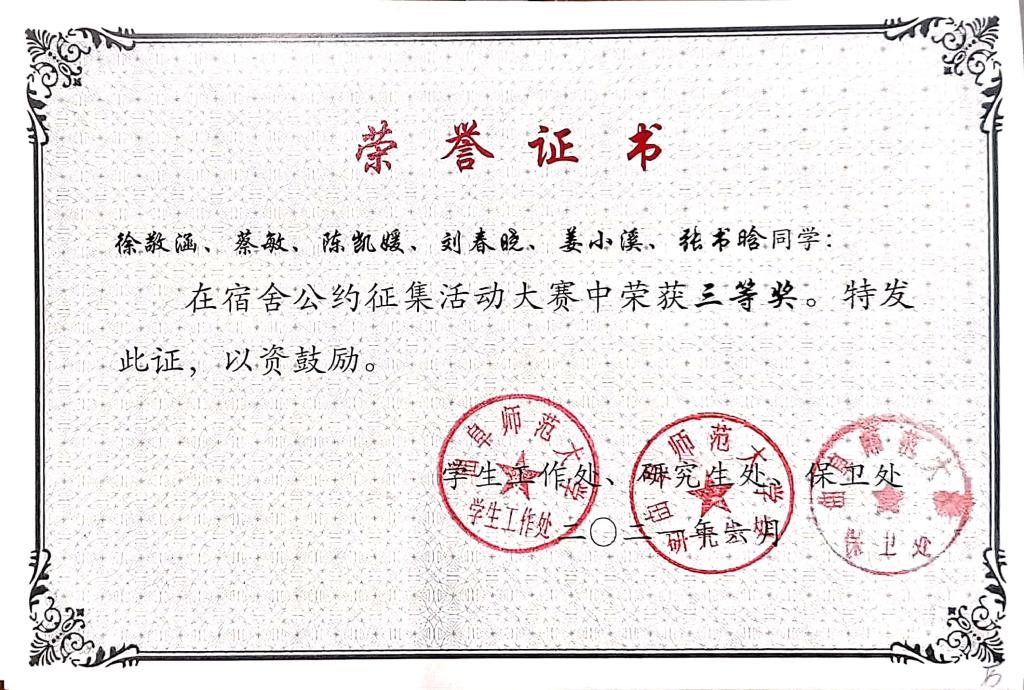 荣誉证书
徐敬涵、蔡敏、陈凯媛、刘春晓、姜小溪、张书晗同学：
在宿舍公约征集活动大赛中荣获三等奖。特发
此证，以资鼓励。
学生工作处、研究生处、保卫处
二〇二一年十一月
曲阜师范大学
学生工作处
曲阜师范大学
研究生处
曲阜师范大学
保卫处